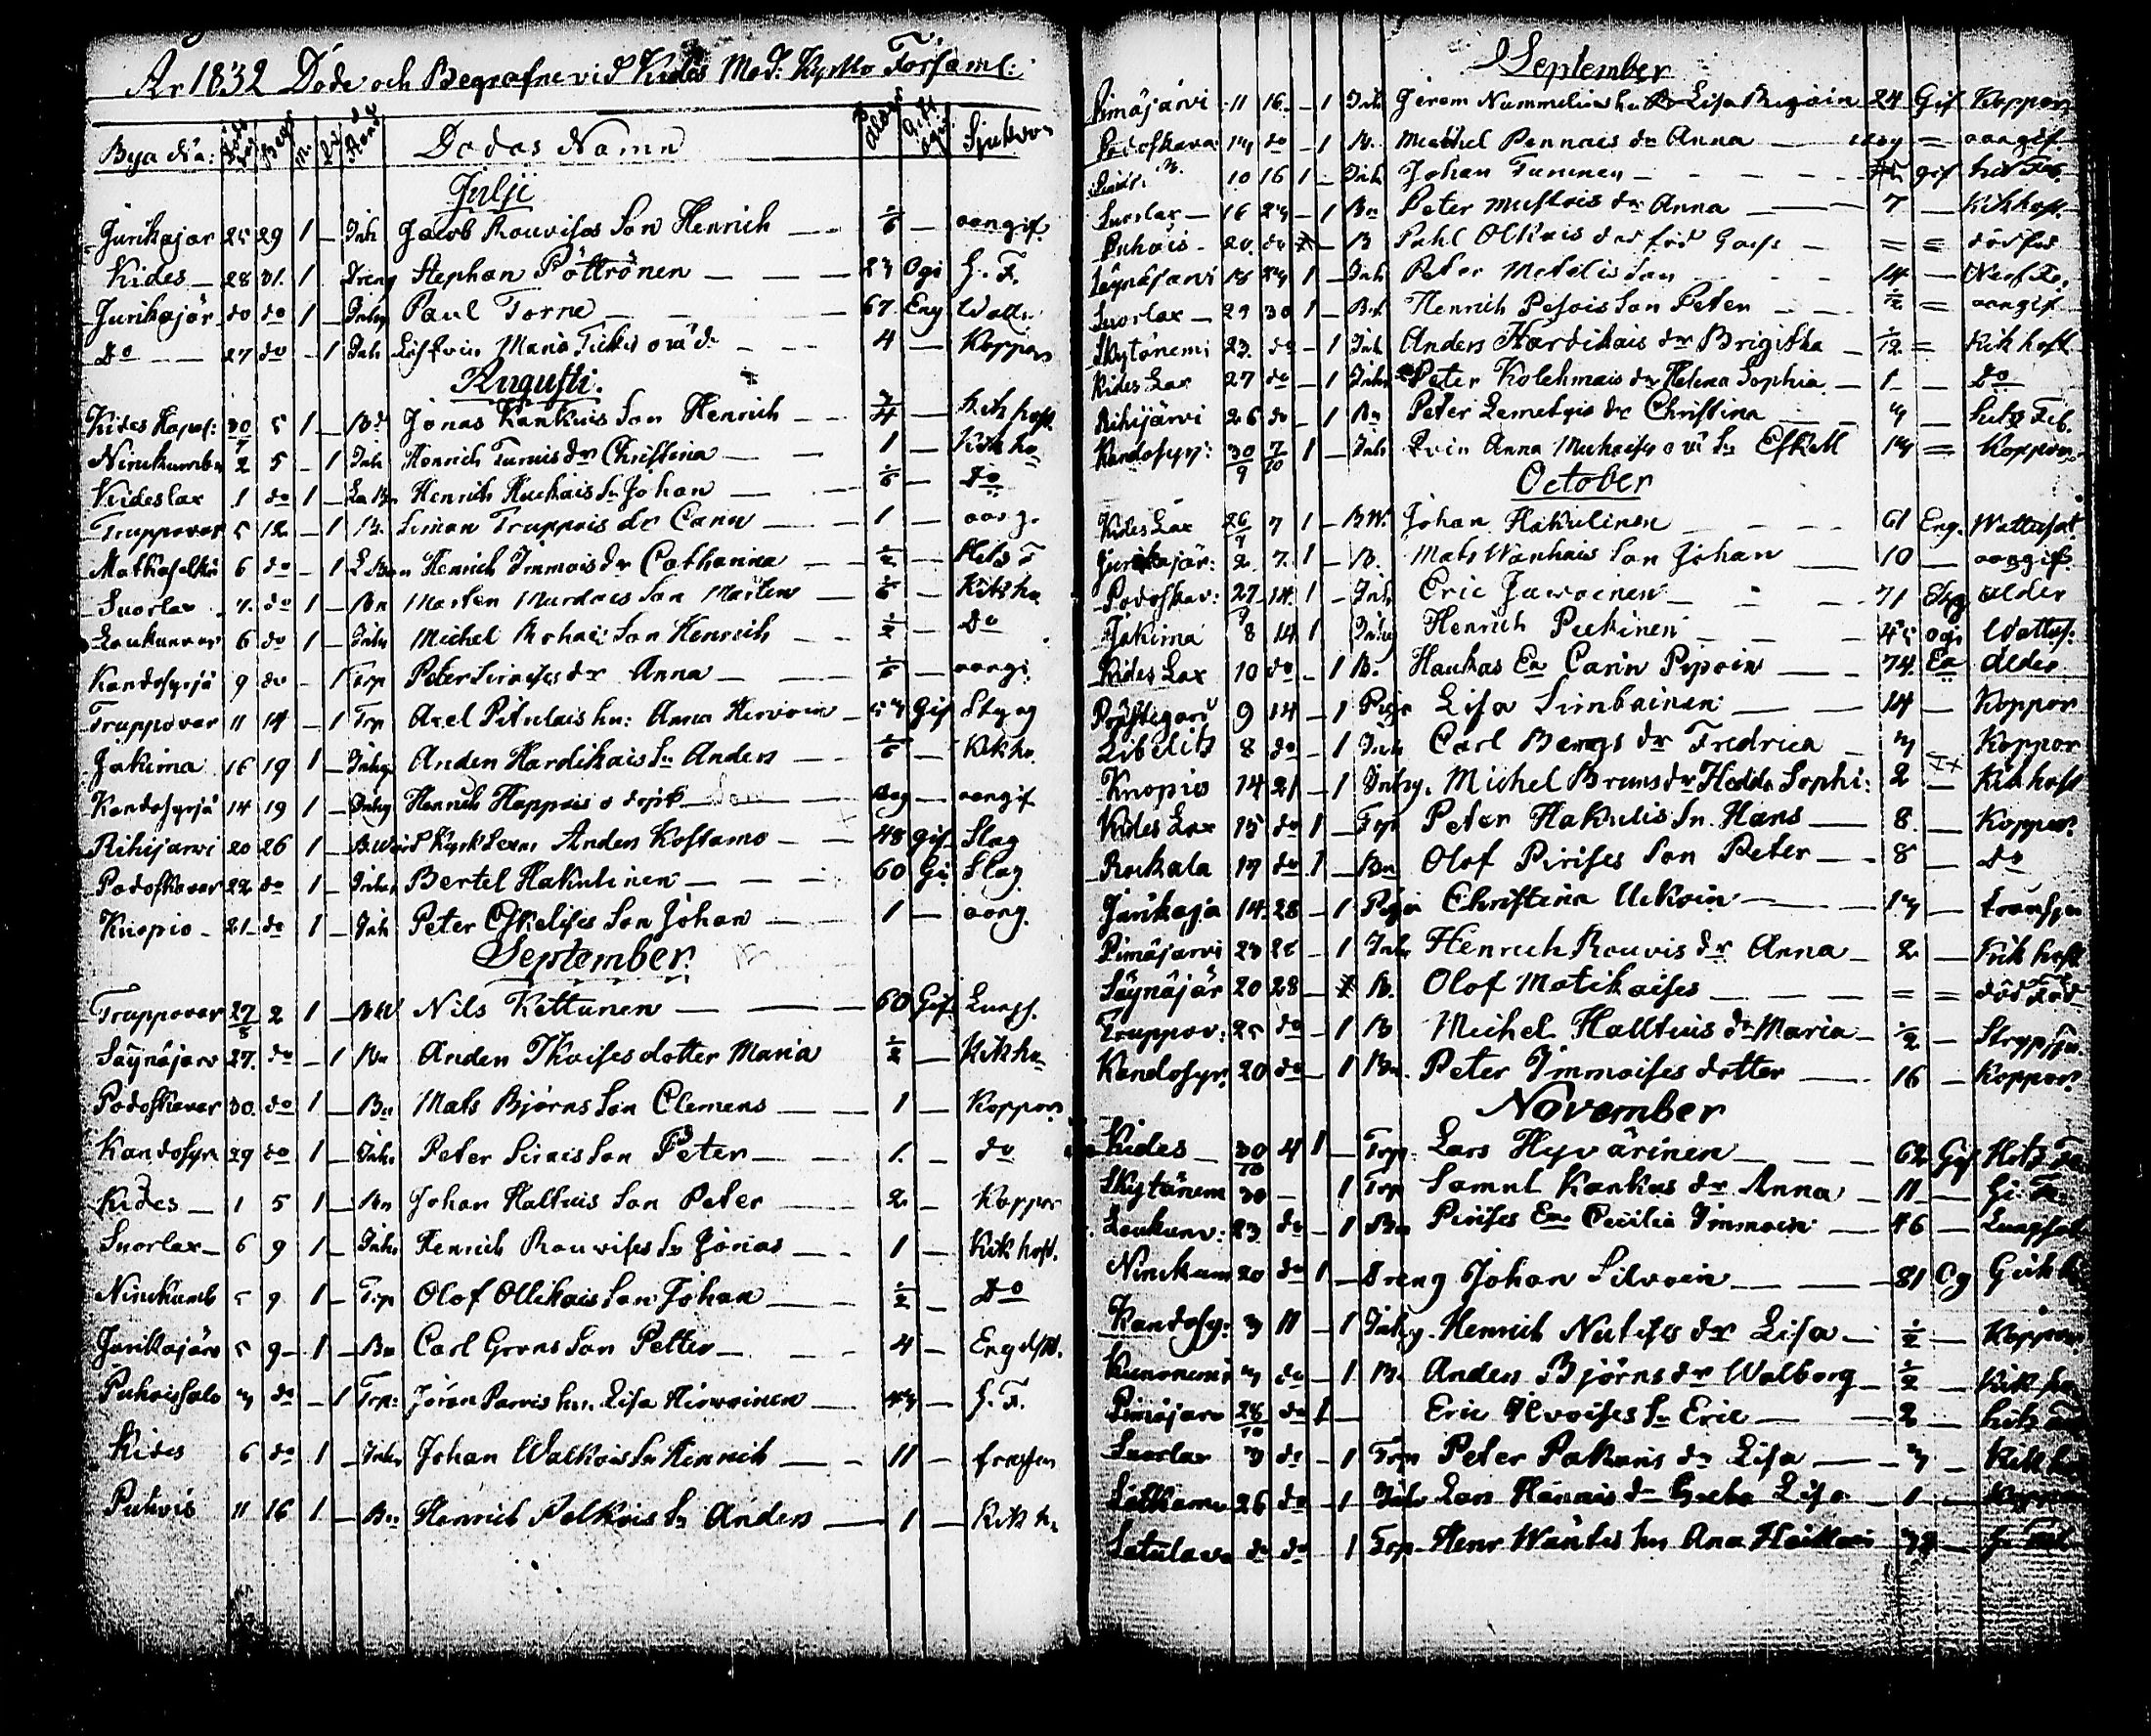 Ar 1832 Döde och Begrafne vid Kides Mod: Kyrko Församl:
Bya Na: Död Begr M. Qv Stand Dödas Namn Alder Gift ogift Sjukdom
Julji
Jurikajar 25 29 1 — Inh Jacob Rouvises Son Henrich — 1/6 — oangif.
Kides — 28 31. 1 Dreng Stephan Pöttrönen — 23 Ogi H. F.
Jurikajär do do 1 — Inhy Paul Torne — 67 Eng Watts
Do — 27 do — 1 Inh Maria o ä dr — 4 — Koppor
Augusti.
Kides 30/7 5 1 — Bd Jonas Kankuis Son Henrich — 3/4 — Kik host
Ninikumbu 2 5 — 1 Inh Henrich Turuis dr Christina — 1 — Kik ho
Kideslax 1 do 1 — Henrich Kuckais Sn Johan — 1/6 — Do
Truppovar 5 12 — 1 B. Simon Truppais dr Carin — 1 — oang.
Matkaselkä 6 do — 1 Henrich Immois dr Catharina — 1/2 — Hets F
Suorlax 7. do 1 — Bn Morten Murdores Son Mårten — 1/6 — Kikho
Loukunvar 6 do 1 — Inhs Michel Rohai: Son Henrich — 1/2 — Do
Kandosyrjä 9 do — 1 Torp Peter Sirneises dr Anna — 1/6 — oangi.
Truppovar 11 14 — 1 Trp Axel Pitulais hu: Anna Hirvoin — 53 Gif Styng
Jakima 16 19 1 — Inhys Anders Hardikais Sn Anders — 1/6 — Kikho.
Kandosyrjä 14 19 1 — Inhy Henrich Happois o döpt Son — dag — oangif
Rihijarvi 20 26 1 — Anders Kostamo — 48 Gif Slag
Podoskavar 22 do 1 — Inhys Bertel Hakulinen — 60 Gi Slag
Kuopio — 21 do 1 — Inh Peter Eskelises Son Johan — 1 — oang.
September
Truppovar 27/8 2 1 — BW Nils Kettunen — 60 Gif. Lungs.
Säynäjarv 27. do — 1 Bn Anders Ikoises dotter Maria 1/2 — Kikho
Podoskavar 30. do 1 — Bn Mats Björns Son Clemens — 1 — Koppor
Kandosyrj 29 do 1 — Inhs Peter Sirnis Son Peter — 1. — do
Kides — 1 5 1 — Bn Johan Haltuis Son Peter — 2 — Koppor
Suorlax — 6 9 1 — Inhs Henrich Rouvises Sn Jonas — 1 — Kik host.
Ninikumb 5 9 1 — Trp Olof Ollikais Son Johan — 1/2 — Do
Jurikajärv 5 9 — 1 — Bn Carl Grens Son Petter — 4 — Eng
Puhoissalo 7 do — 1 Trp: Jöran Parvis hu. Lisa Hirvoinen — 43 — H. F.
Kides 6 do 1 — Inhs Johan Walkois Sn Hinrich — 11 —
Puhois 11 16 1 — Bn Henrich Polkois Sn Anders — 1 — Kik ho
September
Pimäjarvi 11 16 — 1 Inh Jerem Nummelius hu Lisa Rigoin 24 Gif Koppor
Podoskava 14 do — 1 B. Michel Pennais dr Anna — = oangif
10 16 1 — Inh Johan Tuminen — gif
Suorlax — 16 23 — 1 Bn Peter Mustois dr Anna — 7 — Kikhost.
Puhois — 20. do — B Pahl Olkois död född Gosse — = = dödföd
Säynäjarvi 18 23 1 — Inh Peter Matilis Son — 14 — Nerf Fe:
Suorlax — 29 30 1 — Bn Henrich Pesois Son Peter — 1/2 = oangif
Skytänemi 23. do — 1 Inh Anders Hardikais dr Brigitta — 1/12 = Kikhost
Kides Lax 27 do — 1 Inhs Peter Kolehmais dr Helena Sophia — 1 — Do
Rihijärvi 26 do — 1 Bn Peter Lemetyis dr Christina — 7 — Feb.
Kandosyrj: 30/9 7/10 1 — Inh Anna o ä Sn Eskell 13 = Koppor
October
Kides Lax 26/9 7 1 — BW. Johan Hakulinen — 61 Eng. Wattusot
Jurikajär: 2 7. 1 — B. Mats Wanhais Son Johan — 10 — oangif.
Podoskav: 27/9 14. 1 — Inh Eric Jawoinen — 71 Elg alder
Jakima 8 14 1 Inhy Henrich Peckinen — 45 ogi Wattus.
Kides Lax 10 do — 1 B. Haukas Ea Carin Pipoin — 74. Ea ålder
Prästegard 9 14 — 1 Piga Lisa Simboinen — 14 — Koppor
Libelits 8 do — 1 Inh Carl Bergs dr Fredrica — 7 — Koppor
Knopio 14 21 — 1 Inhy. Michel Bruns dr Hedda Sophi: 2 — Kik host
Kides Lax 15 do 1 — Trp Peter Hakulis Sn Hans — 8. — Koppor
Rockala 17 do 1 — Bn Olof Pirises Son Peter — 8 — do
Jurikaja 14. 28 — 1 Piga Christina Uckoin — 13 —
Pimäjarvi 23 28 — 1 Inh Henrich Rouvis dr Anna — 2 — Kik host
Säynäjär 20 28 — B. Olof Matikaises — = = död föd
Truppov: 25 do — 1 B Michel Halltuis dr Maria — 1/2 — Strypsju.
Kandosyr. 20 do — 1 Bn. Peter Immoises dotter — 16 — Koppor
November
Kides — 30/10 4 1 — Trp. Lars Hyvärinen — 62 Gif Hets Fe
Skytänem 30 — 1 Trp Samul Kankus dr Anna — 11 —
Loukunv: 23. do — 1 Bn Pirises Ea Cecilia Immoin — 46 — Lungsot
Ninikum 20 do 1 — Dreng Johan Silvoin — 81 Og
Kandosy. 3 11 — 1 Inhy. Henrich Nutises dr Lisa — 1/2 — Koppor
Kunonemi 7 do — 1 B. Anders Björns dr Walborg — 1/2 — Kik ho
Pimäjarv 28/10 do 1 — Eric Ilvoises Sn Eric — 2 —
Suorlax 3 do — 1 Trp Peter Pakaris dr Lisa — 7 — Kikh
Lätkamu 26 do — 1 Inh Lars Hännis dr Greta Lisa — 1 — Koppor
Satulava do do 1 Trp Henr Wäntis hu Ana Haikoi